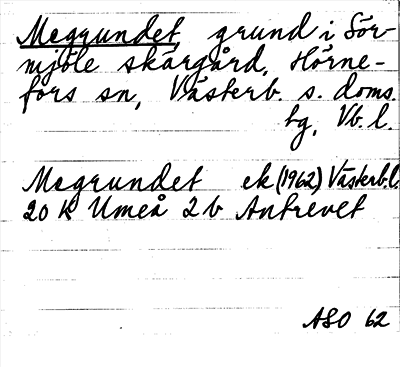 Megrundet, grund i Sör-
mjöle skärgård, Hörne-
fors sn, Västerb. s. doms.
hg, Vb. l.
Megrundet ek (1962) Västerb.l.
20 K Umeå 2 b Antrevet
ASO 62